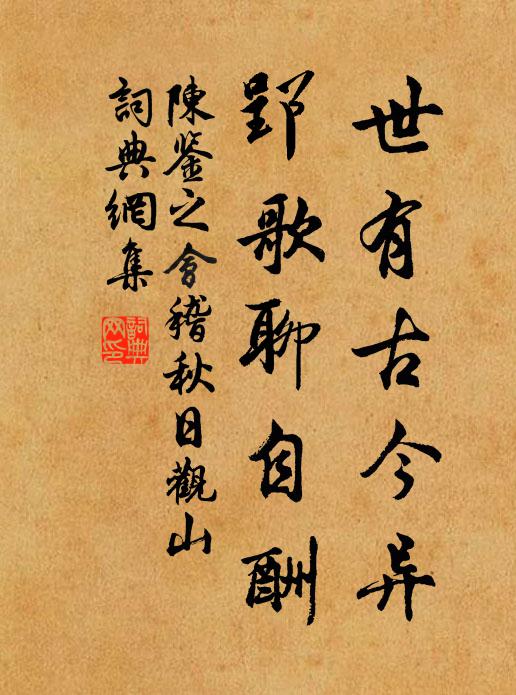 世有古今异
郢歌聊自酬
陳鉴之会稽秋日觀山
詞典網集
詞典网印